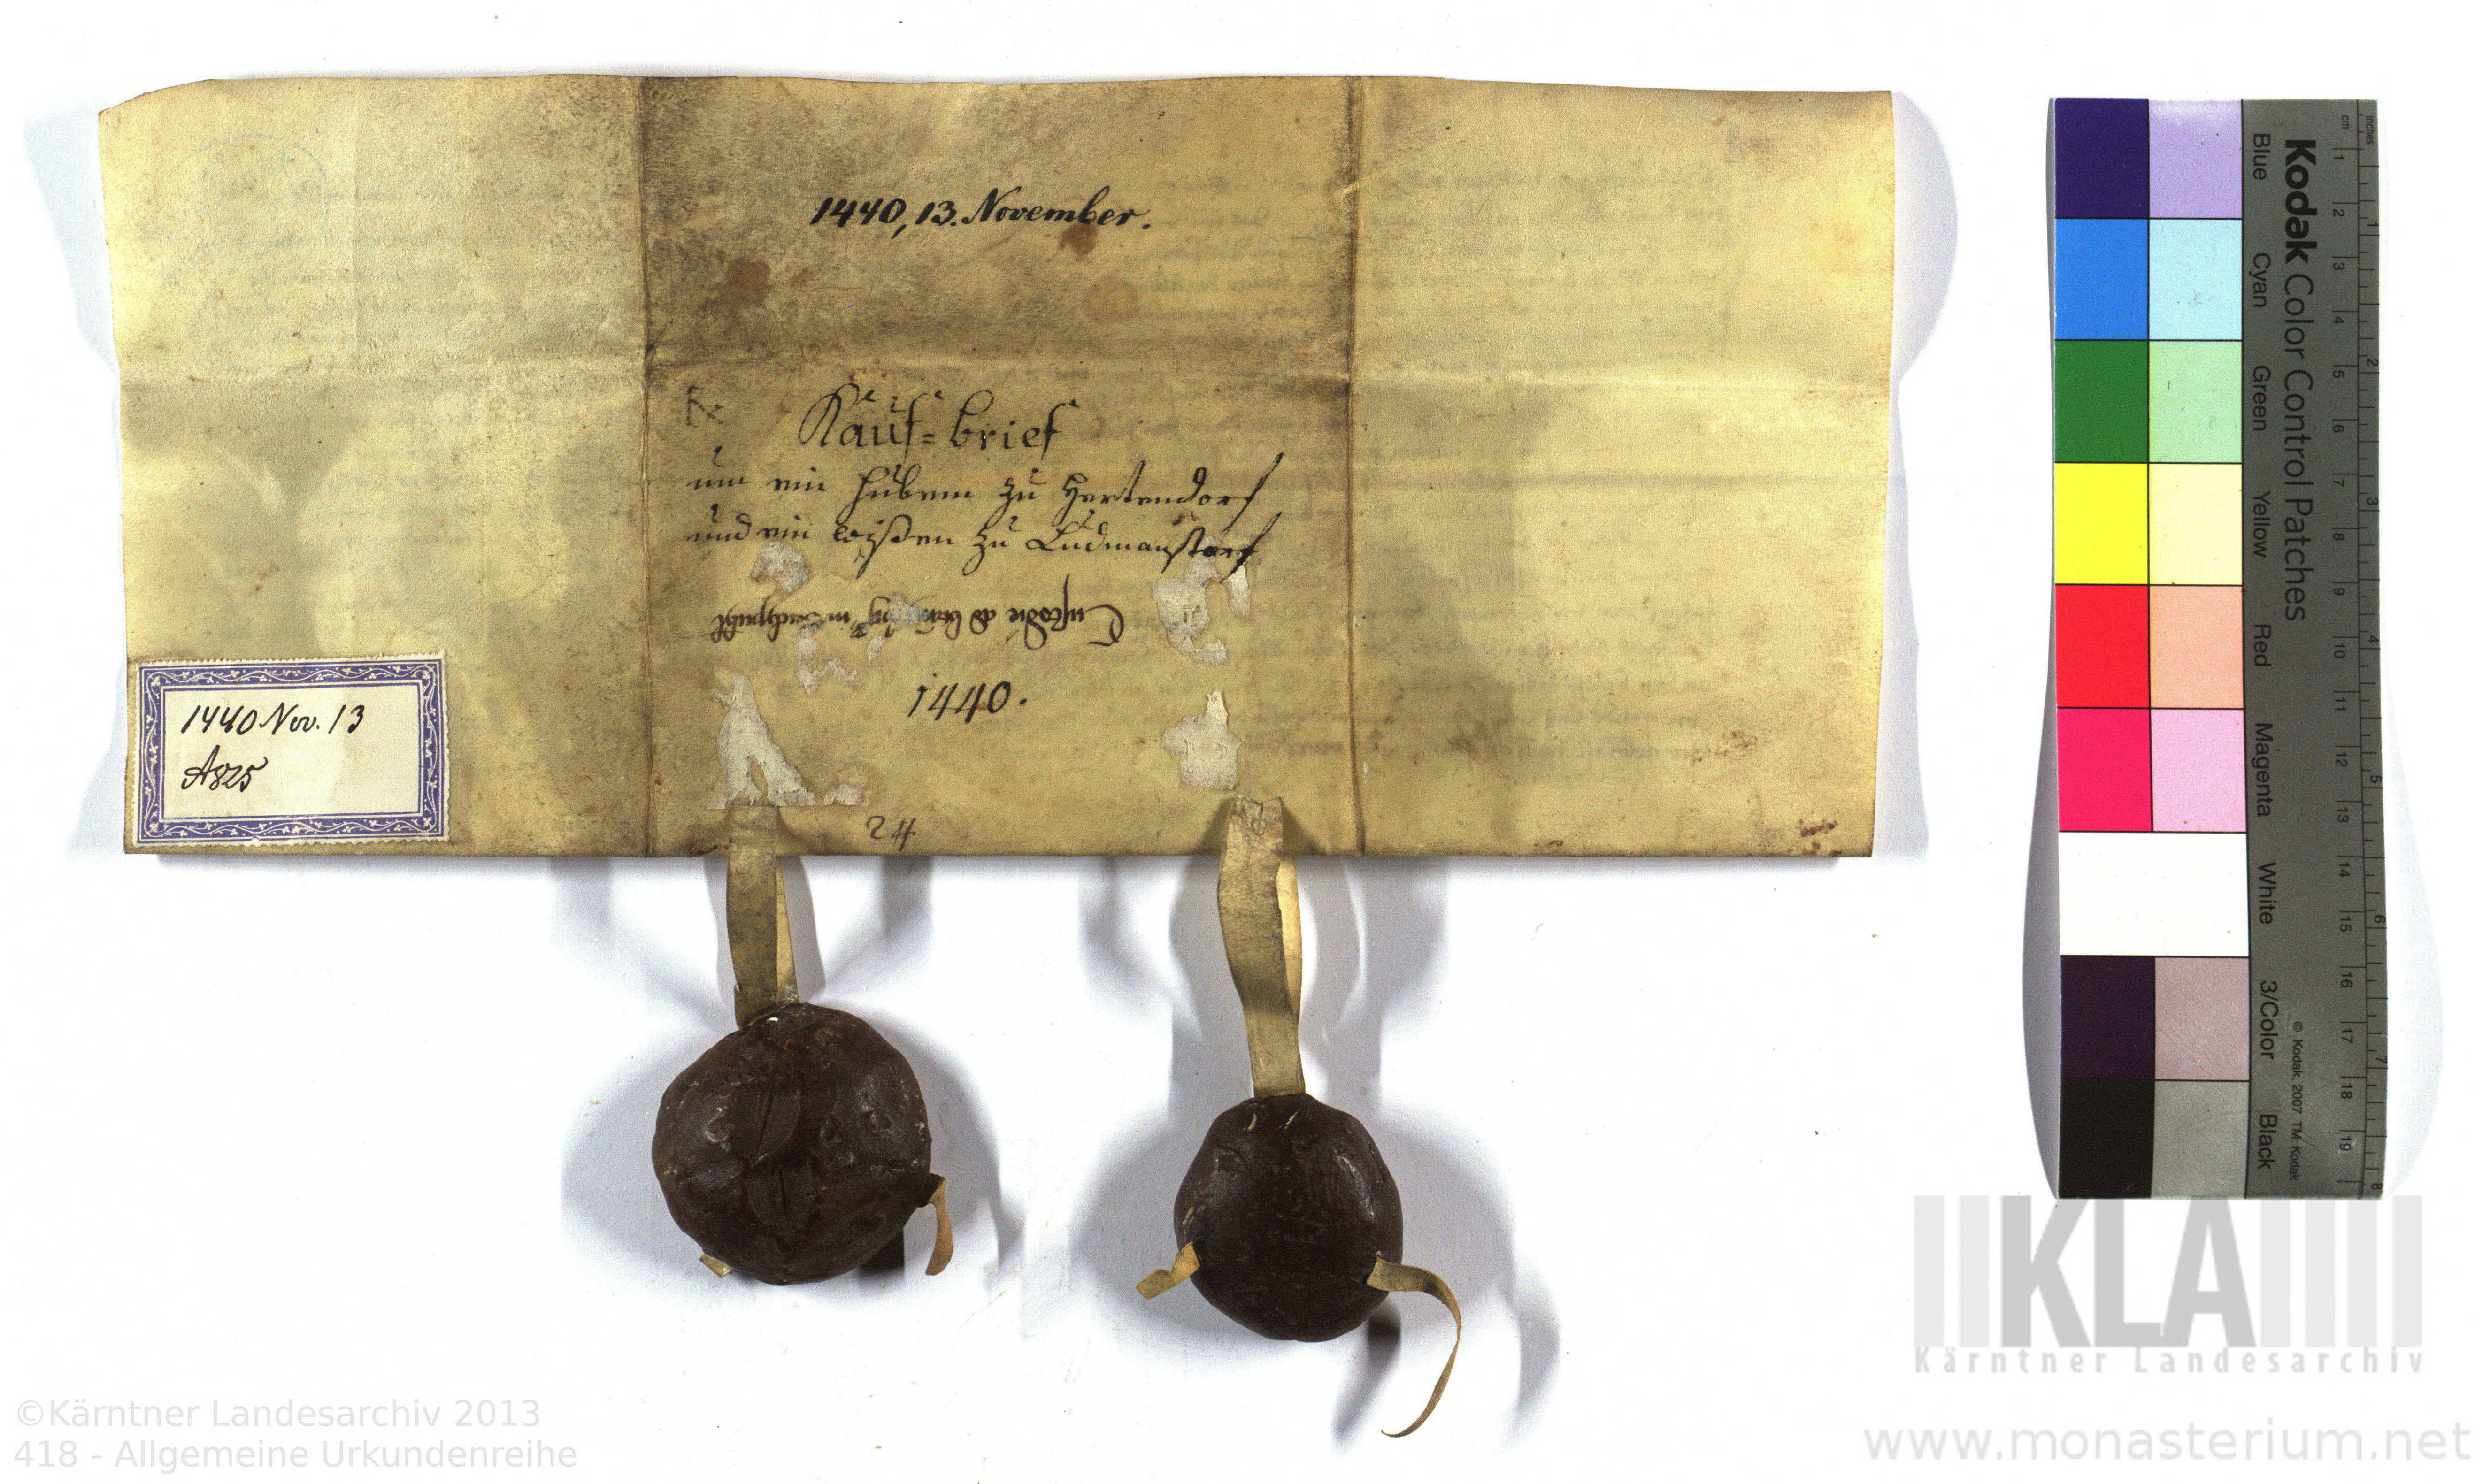 1440, 13. November.
Kauf=brief
um ein hubem zu Hertendorf
und ein wißen zu Ludmanstorf
Custodie
1440.
24
1440 Nov. 13
A825
Kodak Color Control Patches
Blue Cyan Green Yellow Red Magenta White 3/Color Black
© Kodak, 2007 TM: Kodak
cm 1 2 3 4 5 6 7 8 9 10 11 12 13 14 15 16 17 18 19
inches 1 2 3 4 5 6 7 8
KLA
Kärntner Landesarchiv
©Kärntner Landesarchiv 2013
418 - Allgemeine Urkundenreihe
www.monasterium.net